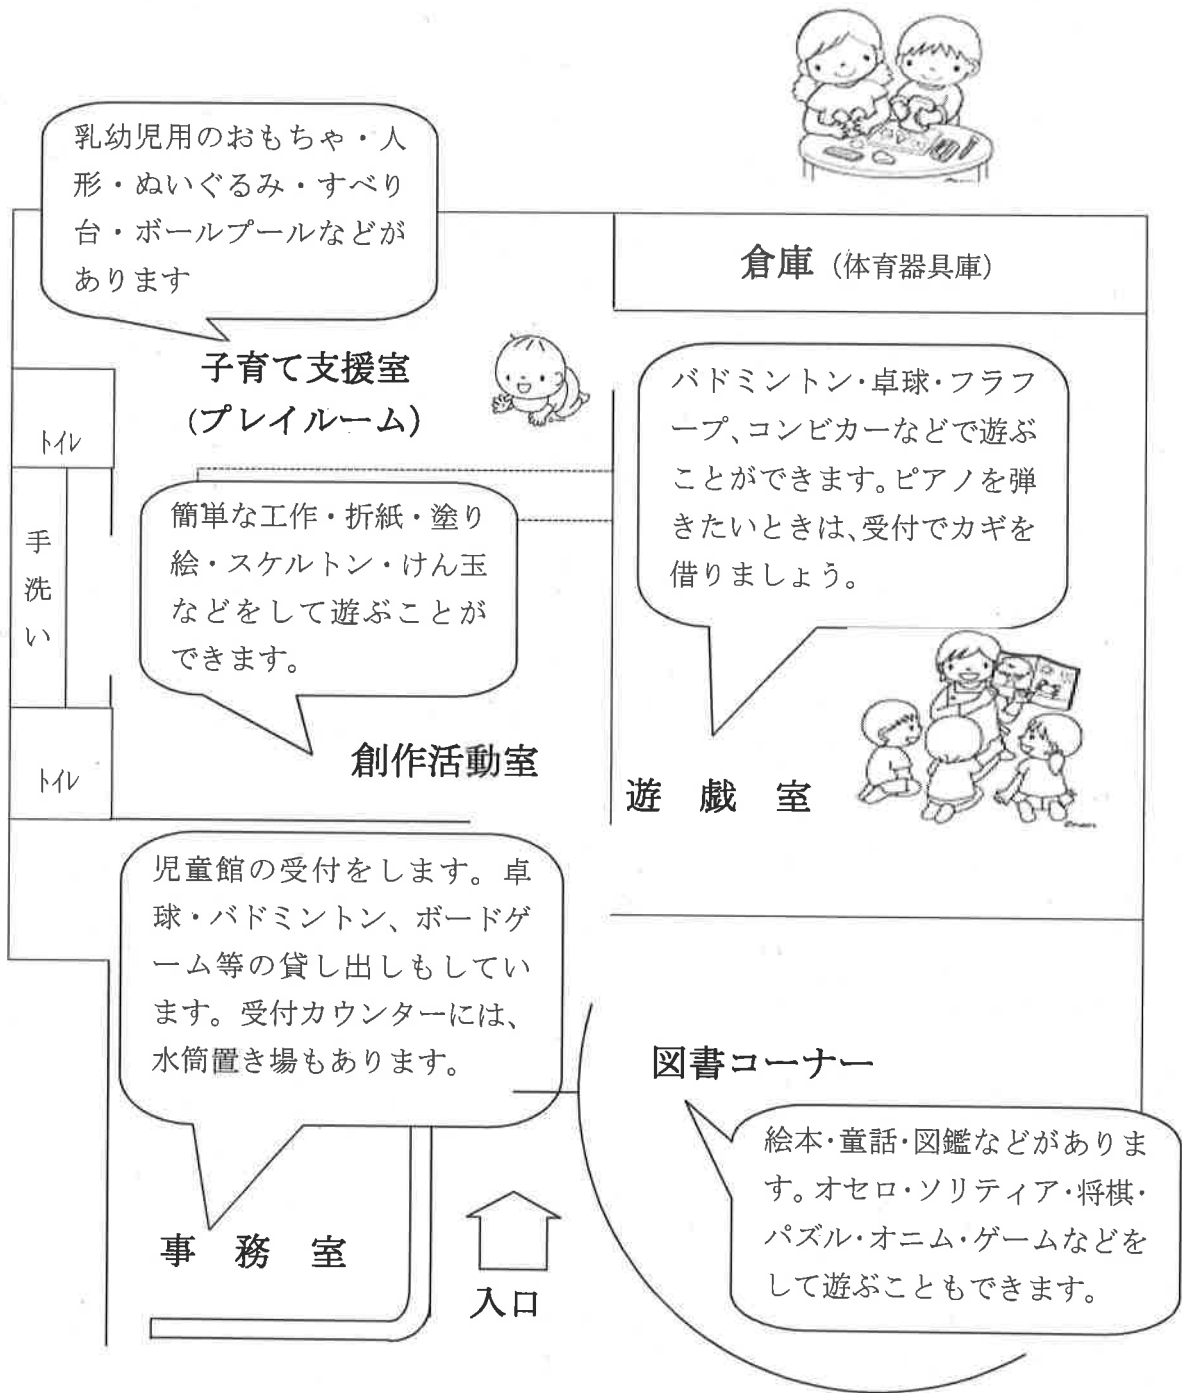 乳幼児用のおもちゃ・人
形・ぬいぐるみ・すべり
台・ボールプールなどが
あります
倉庫（体育器具庫）
子育て支援室
(プレイルーム)
バドミントン・卓球・フラフ
ープ、コンビカーなどで遊ぶ
ことができます。ピアノを弾
きたいときは、受付でカギを
借りましょう。
トイレ
手洗い
簡単な工作・折紙・塗り
絵・スケルトン・けん玉
などをして遊ぶことが
できます。
トイレ
創作活動室
遊戯室
児童館の受付をします。卓
球・バドミントン、ボードゲ
ーム等の貸し出しもしてい
ます。受付カウンターには、
水筒置き場もあります。
図書コーナー
絵本・童話・図鑑などがありま
す。オセロ・ソリティア・将棋・
パズル・オニム・ゲームなどを
して遊ぶこともできます。
事務室
入口